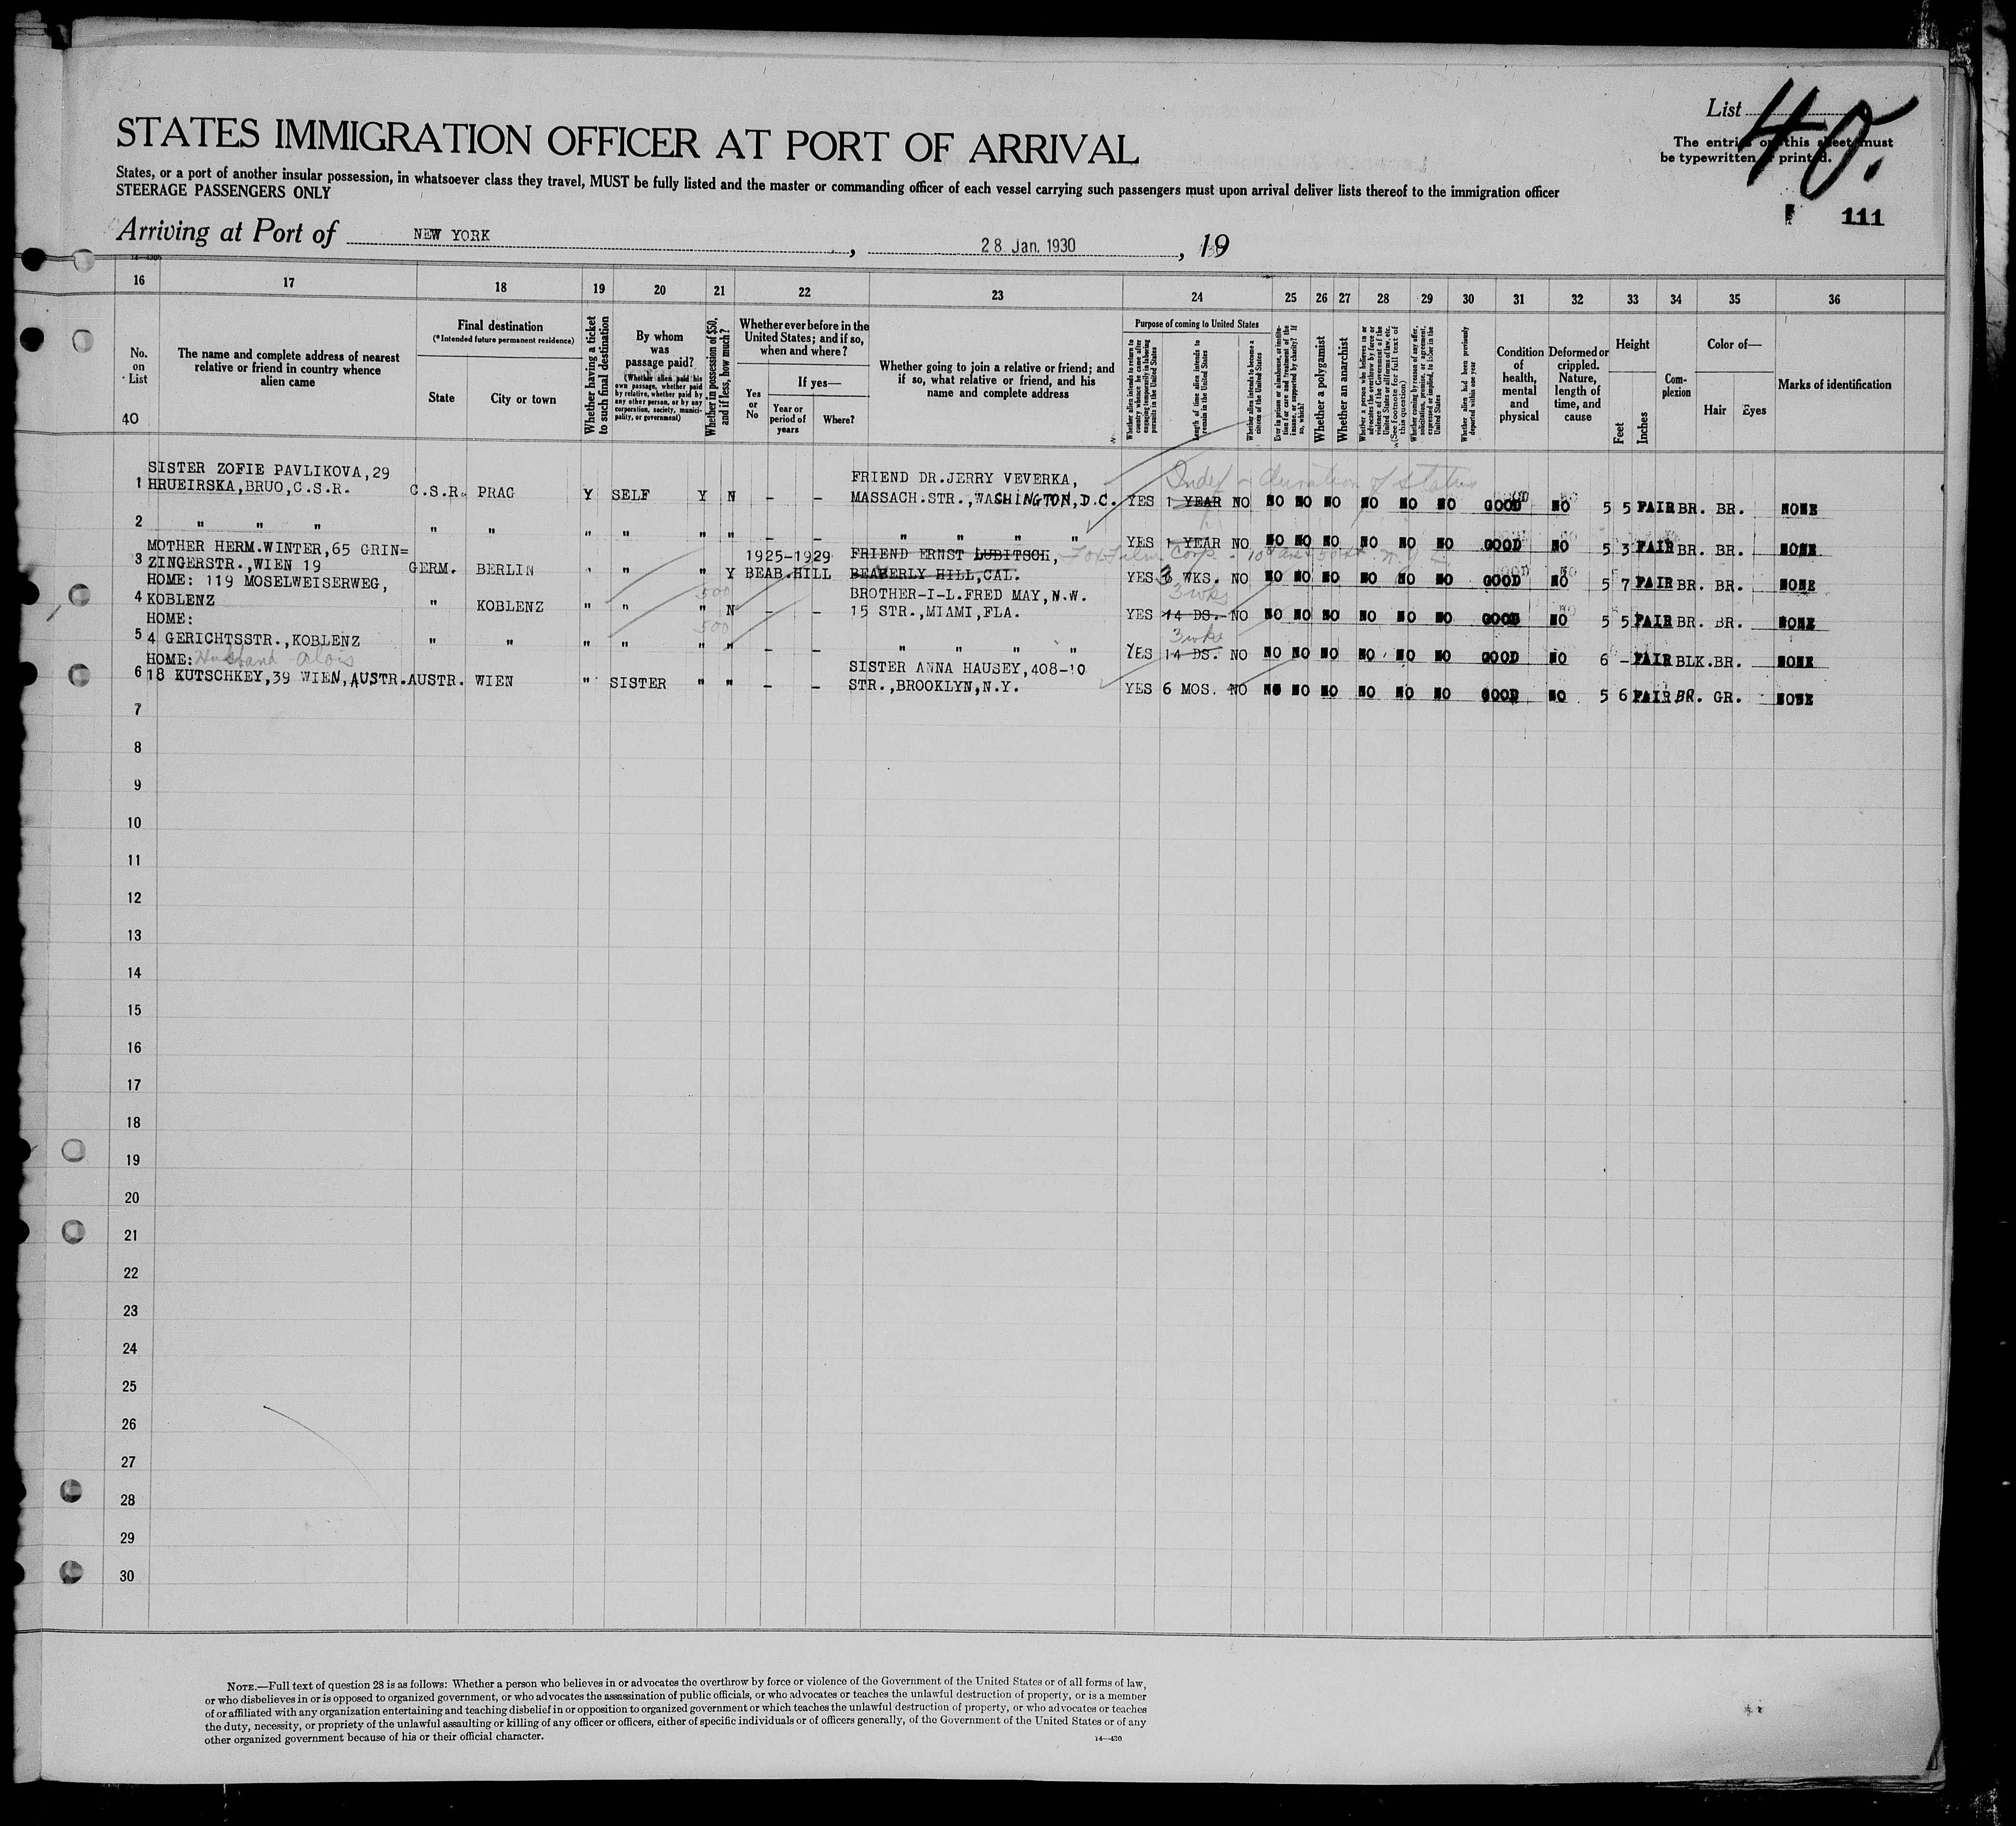 List 40.
STATES IMMIGRATION OFFICER AT PORT OF ARRIVAL
The entries on this sheet must
be typewritten or printed.
States, or a port of another insular possession, in whatsoever class they travel, MUST be fully listed and the master or commanding officer of each vessel carrying such passengers must upon arrival deliver lists thereof to the immigration officer
STEERAGE PASSENGERS ONLY
111
Arriving at Port of NEW YORK, 28 Jan. 1930, 19
16 17 18 19 20 21 22 23 24 25 26 27 28 29 30 31 32 33 34 35 36
No. on List
40
The name and complete address of nearest relative or friend in country whence alien came
Final destination
(*Intended future permanent residence)
State
City or town
Whether having a ticket to such final destination
By whom was passage paid?
(Whether alien paid his own passage, whether paid by relative, whether paid by any other person, or by any corporation, society, municipality, or government)
Whether in possession of $50, and if less, how much?
Whether ever before in the United States; and if so, when and where?
Yes or No
If yes—
Year or period of years
Where?
Whether going to join a relative or friend; and if so, what relative or friend, and his name and complete address
Purpose of coming to United States
Whether alien intends to return to country whence he came after engaging temporarily in laboring pursuits in the United States
Length of time alien intends to remain in the United States
Whether alien intends to become a citizen of the United States
Ever in prison or almshouse, or institution for care and treatment of the insane, or supported by charity? If so, which?
Whether a polygamist
Whether an anarchist
Whether a person who believes in or advocates the overthrow by force or violence of the Government of the United States or all forms of law, etc. (See footnote for full text of this question)
Whether coming by reason of any offer, solicitation, promise, or agreement, expressed or implied, to labor in the United States
Whether alien had been previously deported within one year
Condition of health, mental and physical
Deformed or crippled. Nature, length of time, and cause
Height
Feet
Inches
Complexion
Color of—
Hair
Eyes
Marks of identification
SISTER ZOFIE PAVLIKOVA,29 FRIEND DR.JERRY VEVERKA, Indef - duration of status
1 HRUEIRSKA,BRUO,C.S.R. C.S.R. PRAG Y SELF Y N - - MASSACH.STR.,WASHINGTON,D.C. YES 1 YEAR NO NO NO NO NO NO NO GOOD NO 5 5 FAIR BR. BR. NONE
2 " " " " " " " " " - - " " " " YES 1 YEAR NO NO NO NO NO NO NO GOOD NO 5 3 FAIR BR. BR. NONE
MOTHER HERM.WINTER,65 GRIN= 1925-1929 FRIEND ERNST LUBITSCH, Fox Film Corp - 10th Ave
3 ZINGERSTR.,WIEN 19 GERM. BERLIN " " " Y BEAB.HILL BEAVERLY HILL,CAL. YES 3 WKS. NO NO NO NO NO NO NO GOOD NO 5 7 FAIR BR. BR. NONE
HOME: 119 MOSELWEISERWEG, 500 BROTHER-I-L.FRED MAY,N.W. 3 wks
4 KOBLENZ " KOBLENZ " " " N - - 15 STR.,MIAMI,FLA. YES 14 DS. NO NO NO NO NO NO NO GOOD NO 5 5 FAIR BR. BR. NONE
HOME: 500 3 wks
5 4 GERICHTSSTR.,KOBLENZ " " " " " " - - " " " " YES 14 DS. NO NO NO NO NO NO NO GOOD NO 6 - FAIR BLK. BR. NONE
HOME: Husband Alois SISTER ANNA HAUSEY,408-10
6 18 KUTSCHKEY,39 WIEN,AUSTR. AUSTR. WIEN " SISTER " " - - STR.,BROOKLYN,N.Y. YES 6 MOS. NO NO NO NO NO NO NO GOOD NO 5 6 FAIR BR. GR. NONE
7
8
9
10
11
12
13
14
15
16
17
18
19
20
21
22
23
24
25
26
27
28
29
30
NOTE.—Full text of question 28 is as follows: Whether a person who believes in or advocates the overthrow by force or violence of the Government of the United States or of all forms of law,
or who disbelieves in or is opposed to organized government, or who advocates the assassination of public officials, or who advocates or teaches the unlawful destruction of property, or is a member
of or affiliated with any organization entertaining and teaching disbelief in or opposition to organized government or which teaches the unlawful destruction of property, or who advocates or teaches
the duty, necessity, or propriety of the unlawful assaulting or killing of any officer or officers, either of specific individuals or of officers generally, of the Government of the United States or of any
other organized government because of his or their official character.
14—430